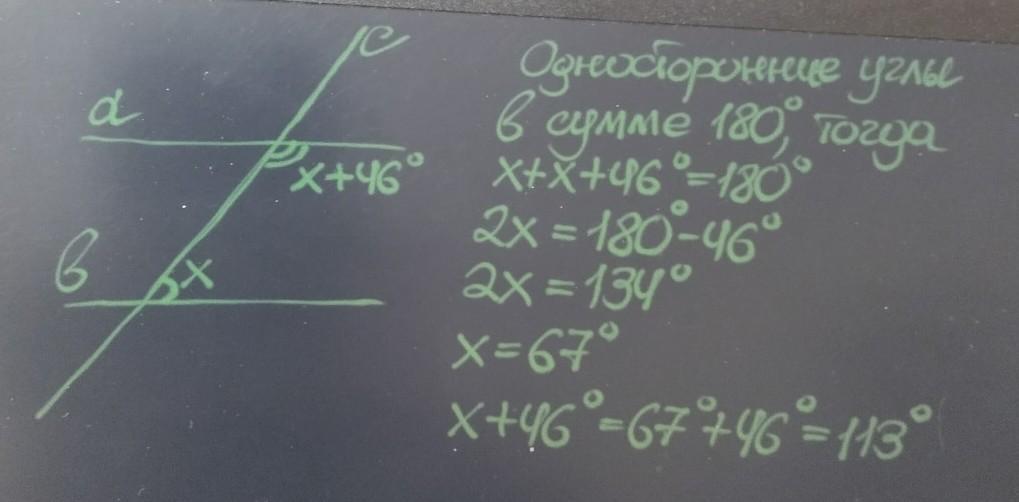 c
a
x+46°
в
x
Односторонние углы
в сумме 180°, тогда
x+x+46°=180°
2x=180°-46°
2x=134°
x=67°
x+46°=67°+46°=113°